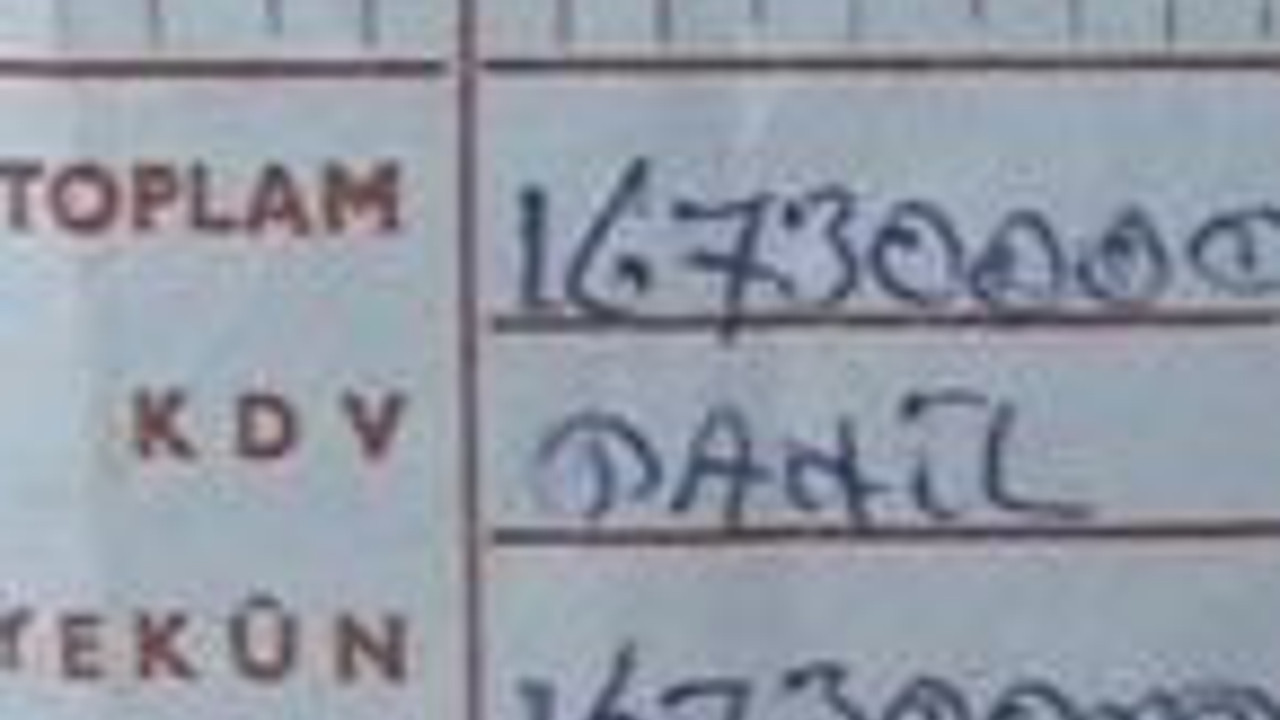 TOPLAM 16730000
KDV DAHİL
YEKÜN